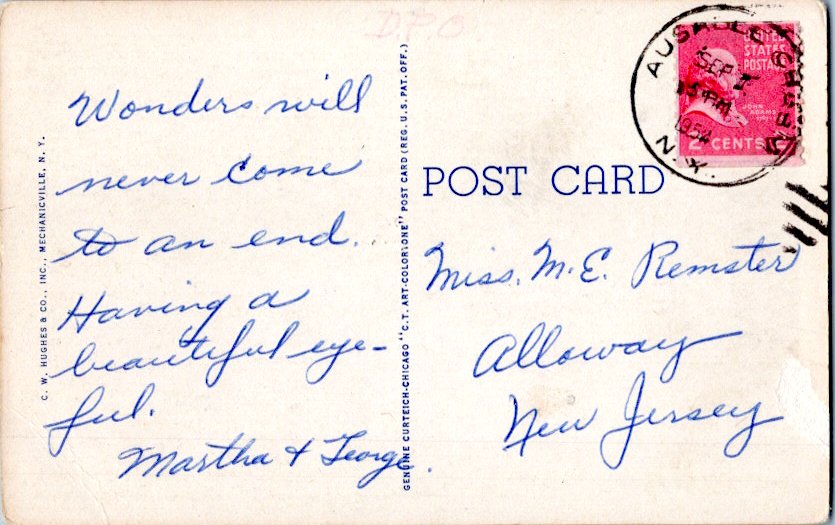 D.P.O
Wonders will
never come
to an end.
Having a
beautiful eye-
ful.
Martha & George.
C. W. HUGHES & CO., INC., MECHANICVILLE, N. Y.
GENUINE CURTEICH-CHICAGO "C.T. ART-COLORTONE" POST CARD (REG. U.S. PAT. OFF.)
POST CARD
AUSABLE
SEP
PM
1954
N.Y.
UNITED
STATES
POSTAGE
JOHN
ADAMS
2 CENTS
Miss. M. E. Remster
Alloway
New Jersey